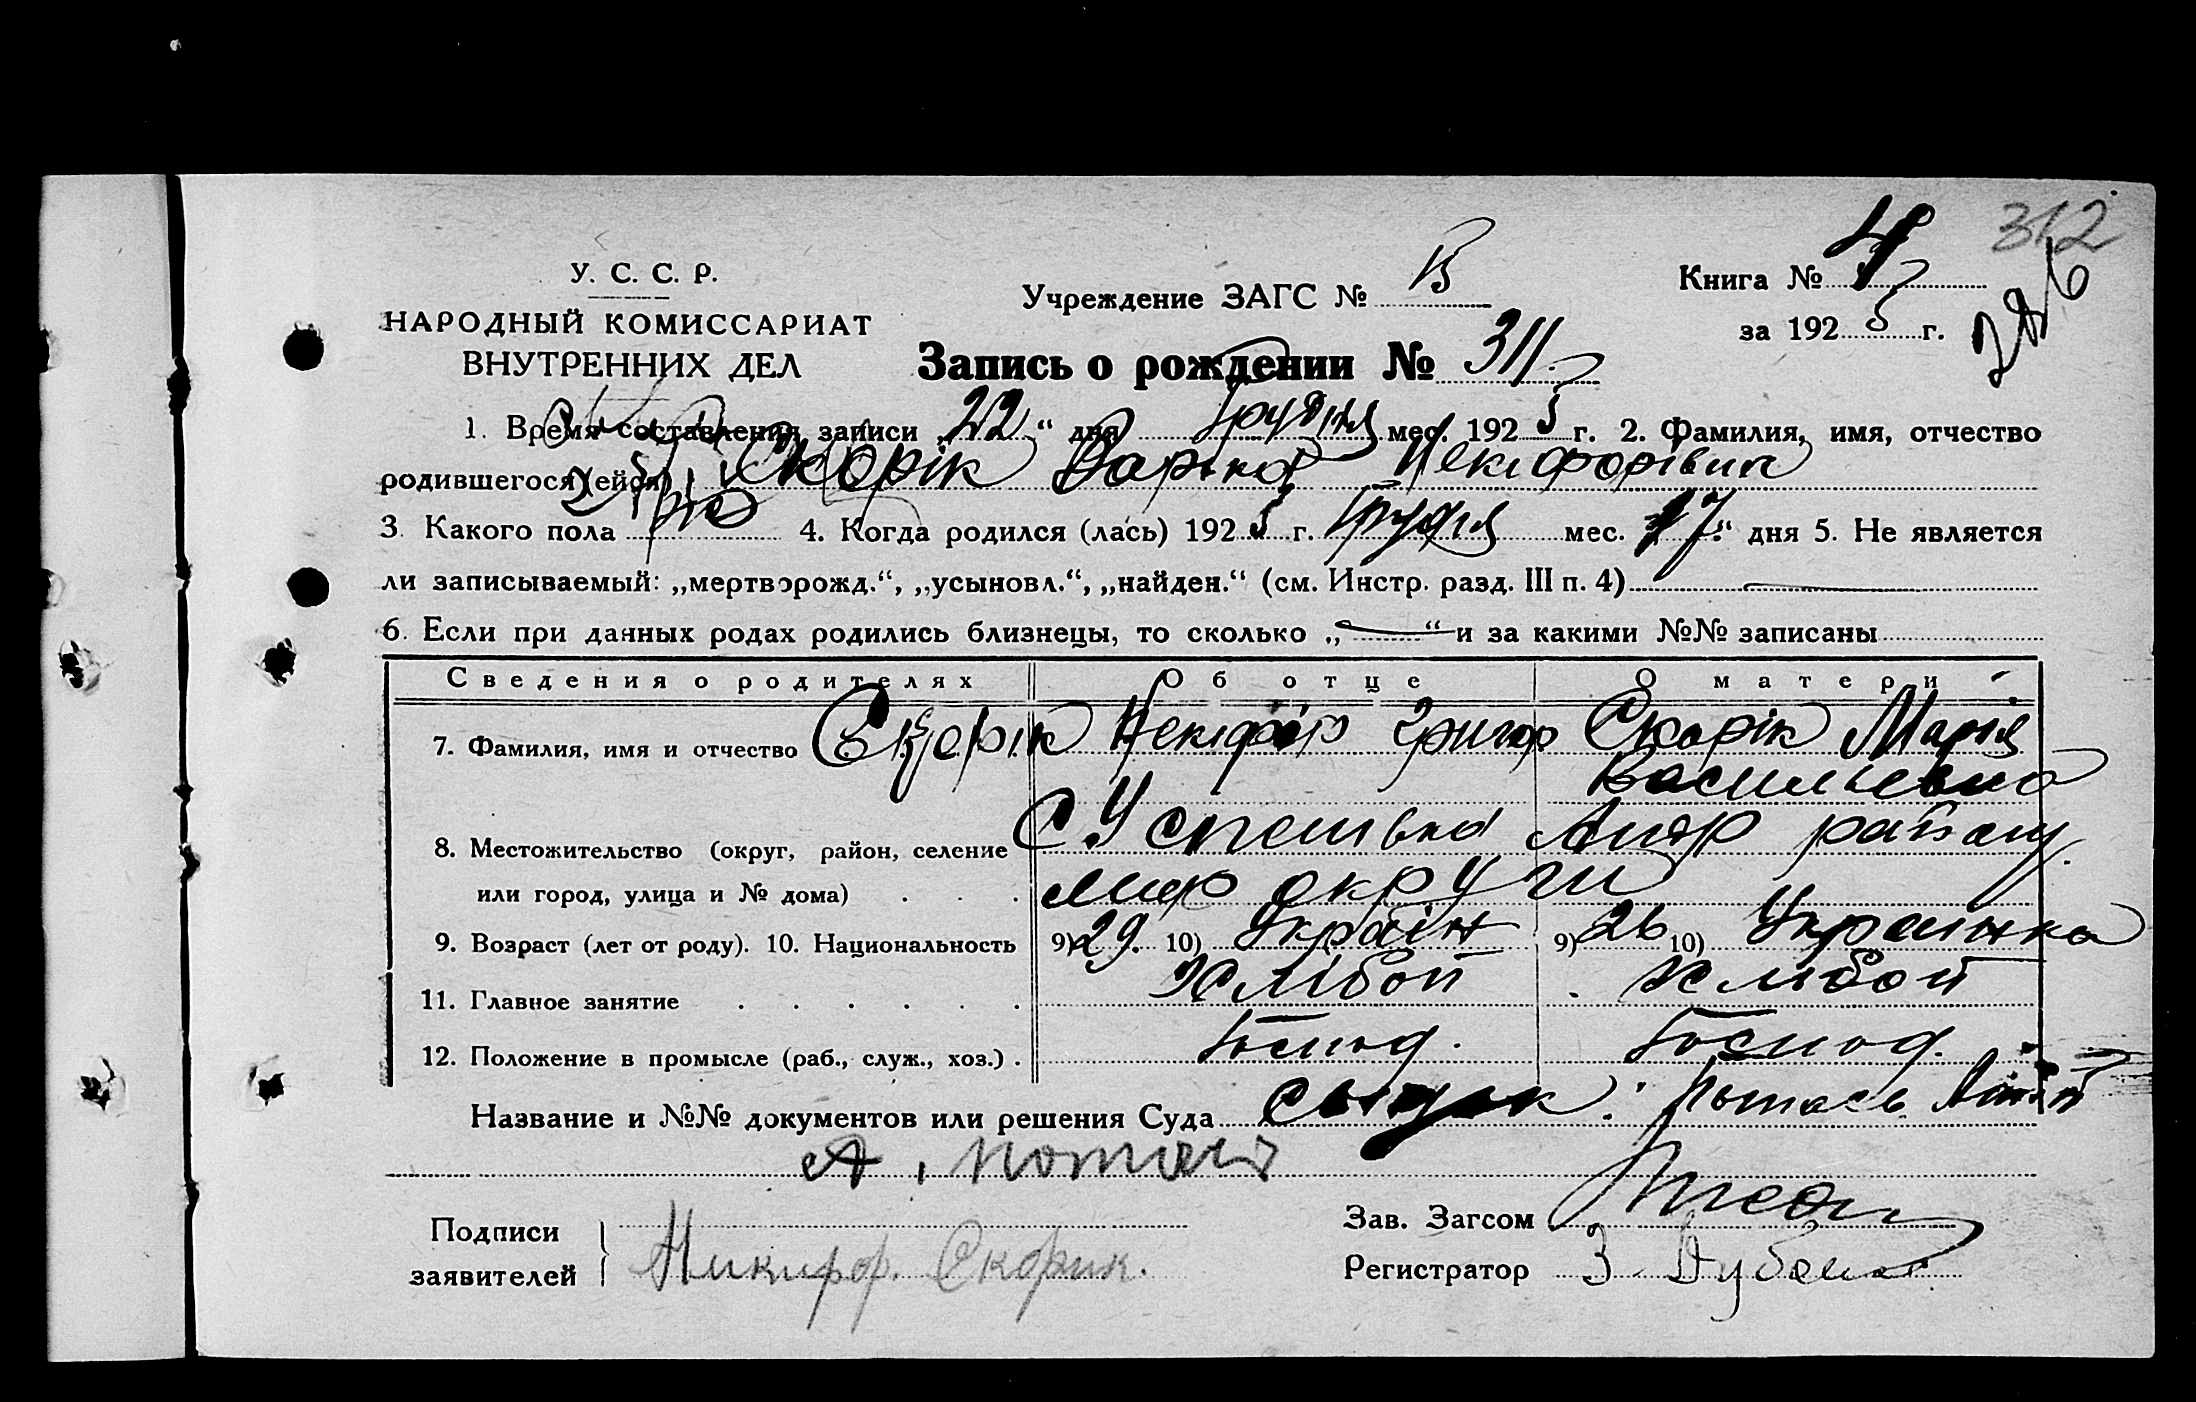 312
У. С. С. Р.
НАРОДНЫЙ КОМИССАРИАТ
ВНУТРЕННИХ ДЕЛ
Учреждение ЗАГС №
Книга № 4
за 1925 г.
Запись о рождении № 311
1. Время составления записи „22“ дня Грудня мес. 1925 г. 2. Фамилия, имя, отчество
родившегося (ейся) Скорік Некіфорівич
3. Какого пола 4. Когда родился (лась) 1925 г. Грудня мес. 17 “ дня 5. Не является
ли записываемый: „мертворожд.“, „усыновл.“, „найден.“ (см. Инстр. разд. III п. 4)
6. Если при данных родах родились близнецы, то сколько „—“ и за какими №№ записаны
Сведения о родителях Об отце О матери
7. Фамилия, имя и отчество Скорік Некіфор Григор Скорік Марія
Васильевна
8. Местожительство (округ, район, селение С. Успеш району
или город, улица и № дома) округи
9. Возраст (лет от роду). 10. Национальность 9) 29. 10) Украін 9) 26 10) Украинка
11. Главное занятие Хлібоп Хлібоп
12. Положение в промысле (раб., служ., хоз.) Господ. Господ.
Название и №№ документов или решения Суда
Подписи
заявителей Никифор. Скорик.
Зав. Загсом
Регистратор З.